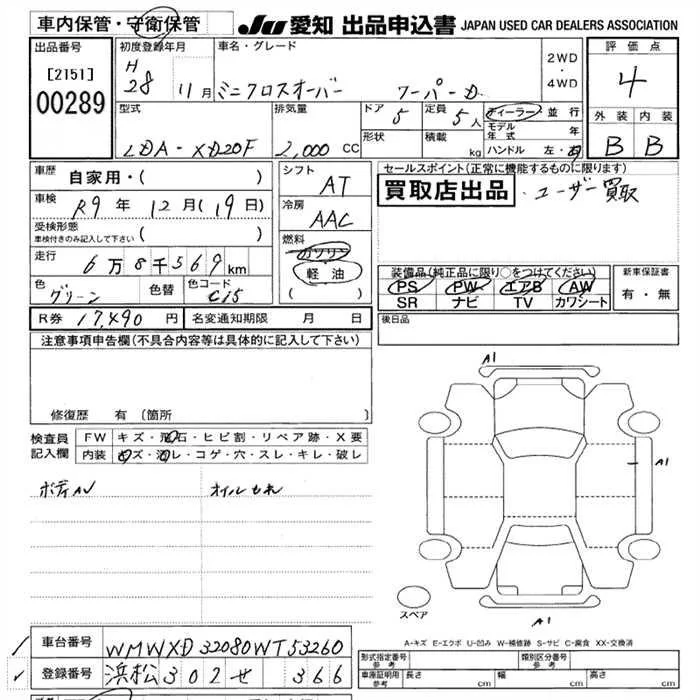 車内保管・守衛保管
JU 愛知 出品申込書 JAPAN USED CAR DEALERS ASSOCIATION
出品番号
[2151]
00289
初度登録年月
H
28 11月
車名・グレード
ミニクロスオーバー クーパーD
2WD
・
4WD
評価点
4
外装 内装
B B
型式
LDA-XD20F
排気量
2,000 CC
ドア
5
定員
5人
形状
積載
kg
ディーラー・並行
モデル年式 年
ハンドル 左・右
車歴
自家用・( )
車検
R9年 12月(19日)
受検形態
車検付きのみ記入して下さい ( )
走行
6万8千569km
色
グリーン
色替
色コード
C15
シフト
AT
冷房
AAC
燃料
ガソリン
軽油
( )
セールスポイント(正常に機能するものに限ります)
買取店出品 ・ユーザー買取
装備品(純正品に限り○をつけてください)
PS PW エアB AW
SR ナビ TV カワシート
新車保証書
有・無
R券 17,490 円 名変通知期限 月 日
後日品
注意事項申告欄(不具合内容等は具体的に記入して下さい)
修復歴 有(箇所 )
検査員
記入欄
FW キズ・飛石・ヒビ割・リペア跡・X要
内装 キズ・汚レ・コゲ・穴・スレ・キレ・破レ
ボディAU
オイルもれ
A1
A1
A1
スペア
A-キズ E-エクボ U-凹み W-補修跡 S-サビ C-腐食 XX-交換済
車台番号 WMWXD32080WT53260
登録番号 浜松302せ 366
形式指定番号
参考
類別区分番号
参考
車庫証明用
参考
長さ cm 幅 cm 高さ cm